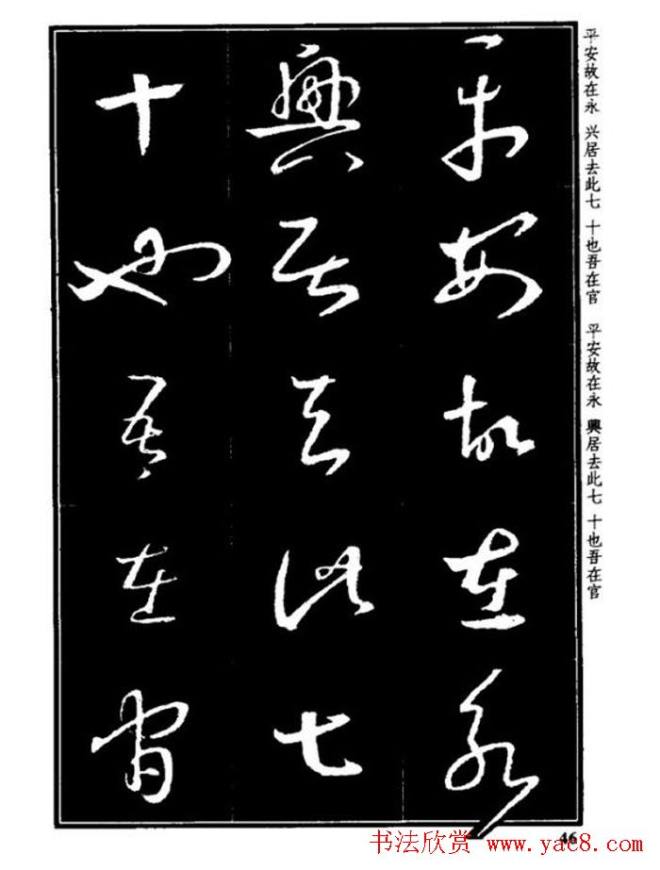 平安故在永
興居去此七
十也吾在官
平安故在永 兴居去此七 十也吾在官 平安故在永 興居去此七 十也吾在官
46
书法欣赏 www.yac8.com